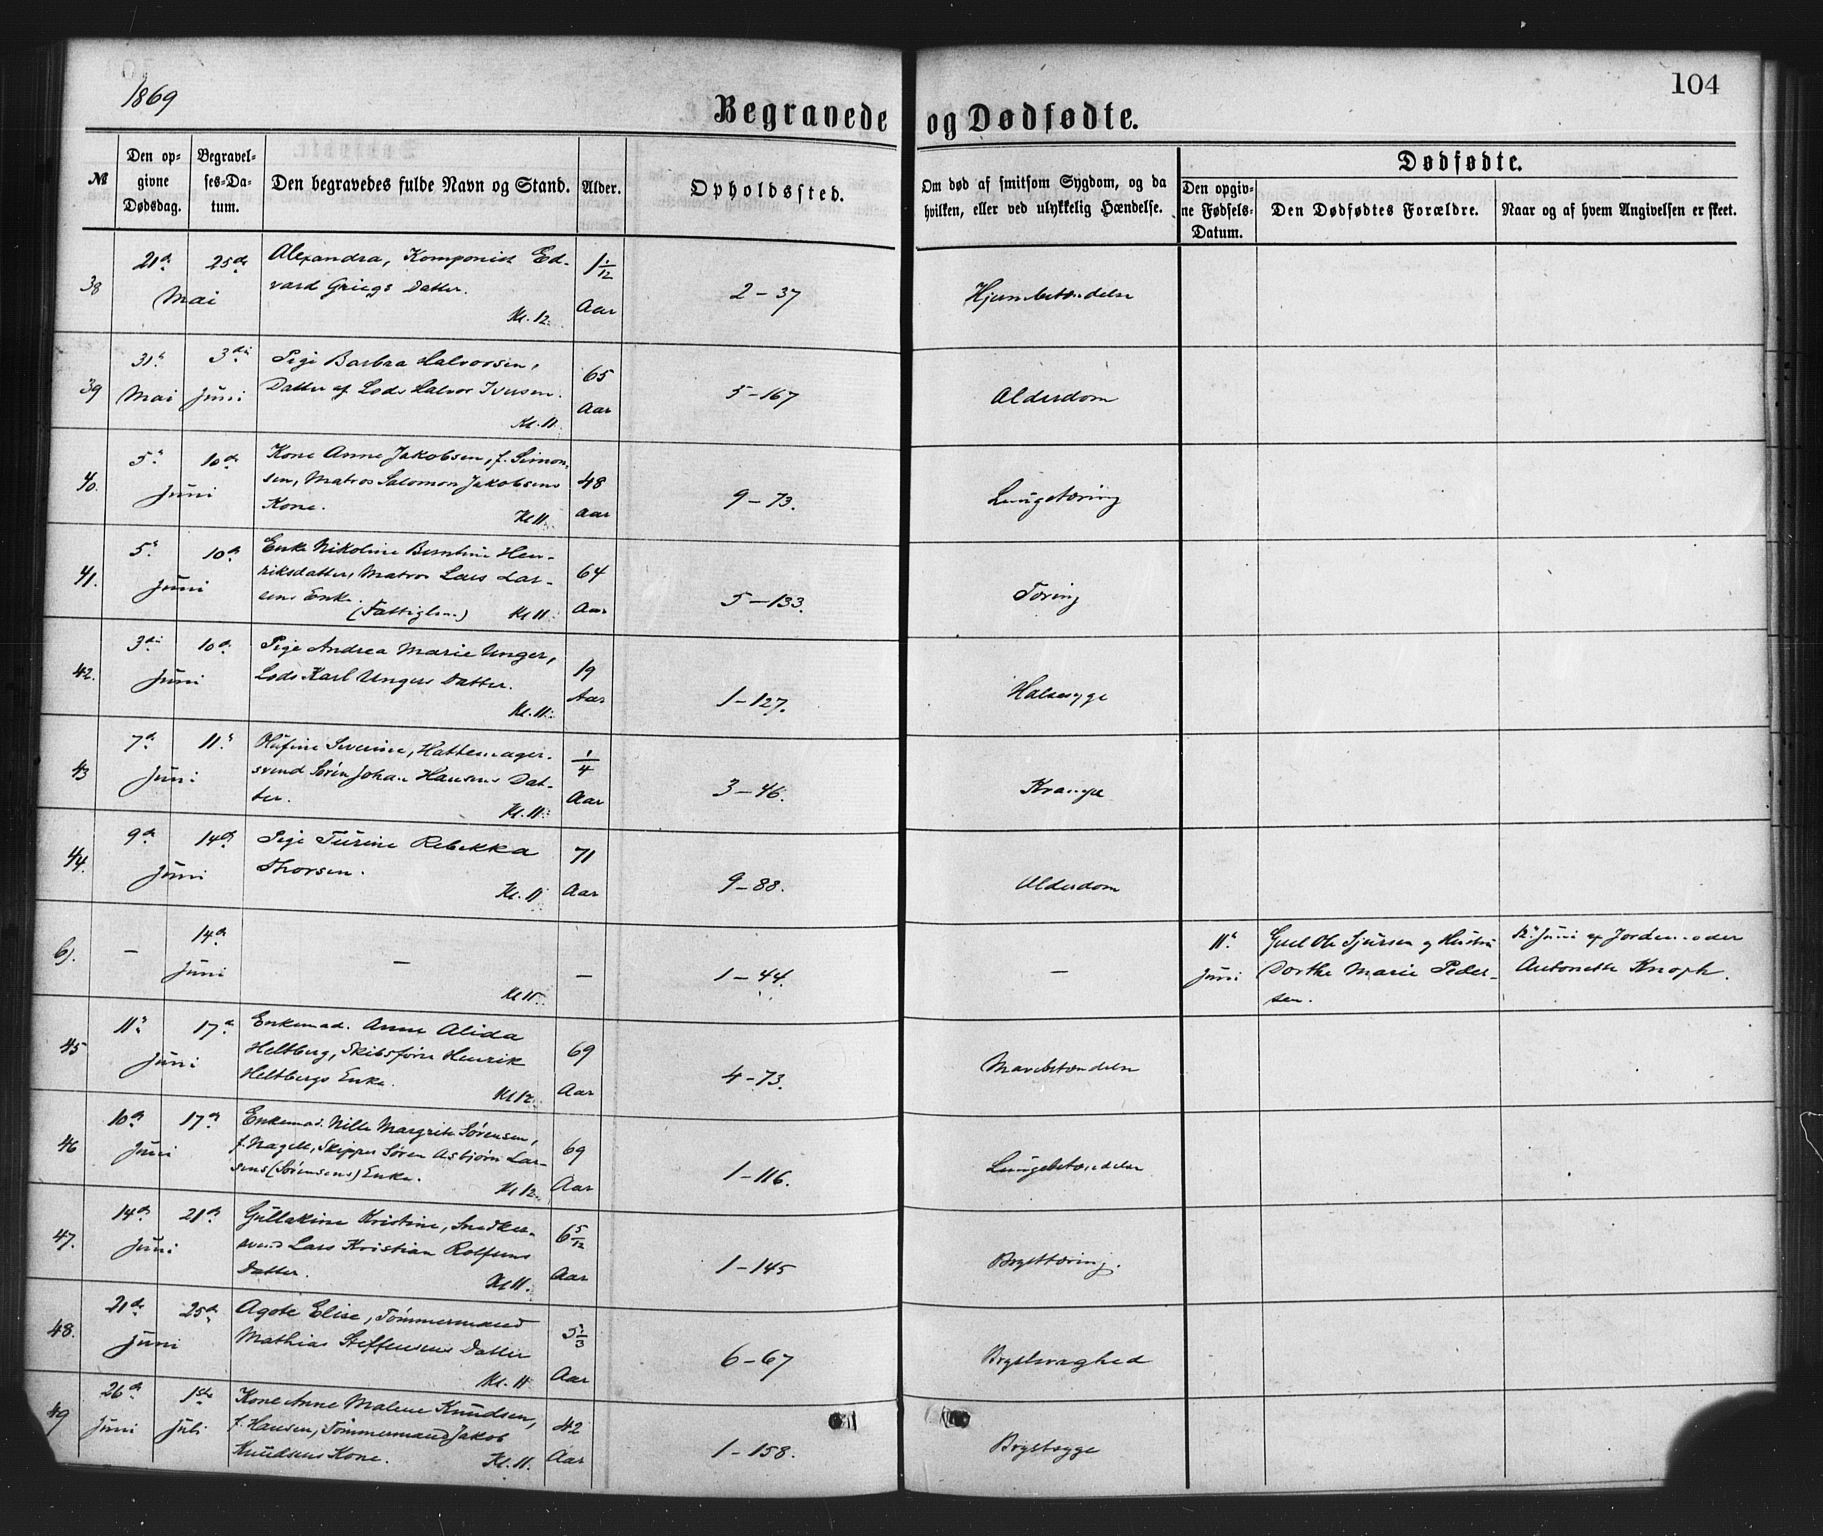 1869
104
Begravede og Dødfødte.
№
Den opgivne Dødsdag.
Begravelses-Datum.
Den begravedes fulde Navn og Stand.
Alder.
Opholdssted.
Om død af smitsom Sygdom, og da hvilken, eller ved ulykkelig Hændelse.
Dødfødte.
Den opgivne Fødsels-Datum.
Den Dødfødtes Forældre.
Naar og af hvem Angivelsen er skeet.
38 21de 25de Mai
Alexandra, Komponist Ed-
vard Griegs Datter.
Kl. 12.
1 1/12 Aar
2-37
Hjernebetændelse
39 31te Mai 3die Juni
Pige Barbra Halvorsen,
Datter af Lods Halvor Iversen.
Kl. 11.
65 Aar
5-167
Alderdom
40. 5te 10de Juni
Kone Anne Jakobsen, f. Simon-
sen, Matros Salomon Jakobsens
Kone.
Kl 11.
48 Aar
9-73.
Lungetæring
41. 5te 10de Juni
Enke Nikoline Berntine Hen-
riksdatter, Matros Lars Lar-
sens Enke.
(Fattiglem.) Kl 11.
64 Aar
5-133.
Tæring
42. 3die 10de Juni
Pige Andrea Marie Unger,
Lods Karl Ungers Datter.
Kl. 11.
19 Aar
1-127.
Halssyge
43 7de 11te Juni
Olufine Severine, Hattemager-
svend Søren Johan Hansens Dat-
ter.
Kl. 11.
1/4 Aar
3-46.
Krampe
44. 9de 14de Juni
Pige Turine Rebekka
Thorsen.
Kl. 11
71 Aar
9-88.
Alderdom
6). - 14de Juni
-
Kl 11.
-
1-44.
-
11te Juni
Ole Sjursen og Hustru
Dorthe Marie Peder-
sen.
12te Juni af Jordemoder
Antonette Knoph.
45 11te 17de Juni
Enkemad. Anne Alida
Heltberg, Skibsfører Henrik
Heltbergs Enke.
Kl 12.
69 Aar
4-73.
Mavebetændelse
46 10de 17de Juni
Enkemad. Nille Margrite Sørensen,
f. Nagell, Skipper Søren Asbjørn Lar-
sens (Sørensens) Enke.
Kl 12.
69 Aar
1-116.
Lungebetændelse
47. 14de 21de Juni
Gullakine Kristine, Snedker-
svend Lars Kristian Rolfsens
Datter.
Kl 11.
6 5/12 Aar
1-145
Brysttæring.
48. 21de 25de Juni
Agate Elise, Tømmermand
Mathias Steffensens Datter
Kl. 11
5 1/3 Aar
6-67
Brystsvaghed
49 26de Juni 1ste Juli
Kone Anne Malene Knudsen,
f. Hansen, Tømmermand Jakob
Knudsens Kone.
Kl. 11.
42 Aar
1-158.
Brystsyge